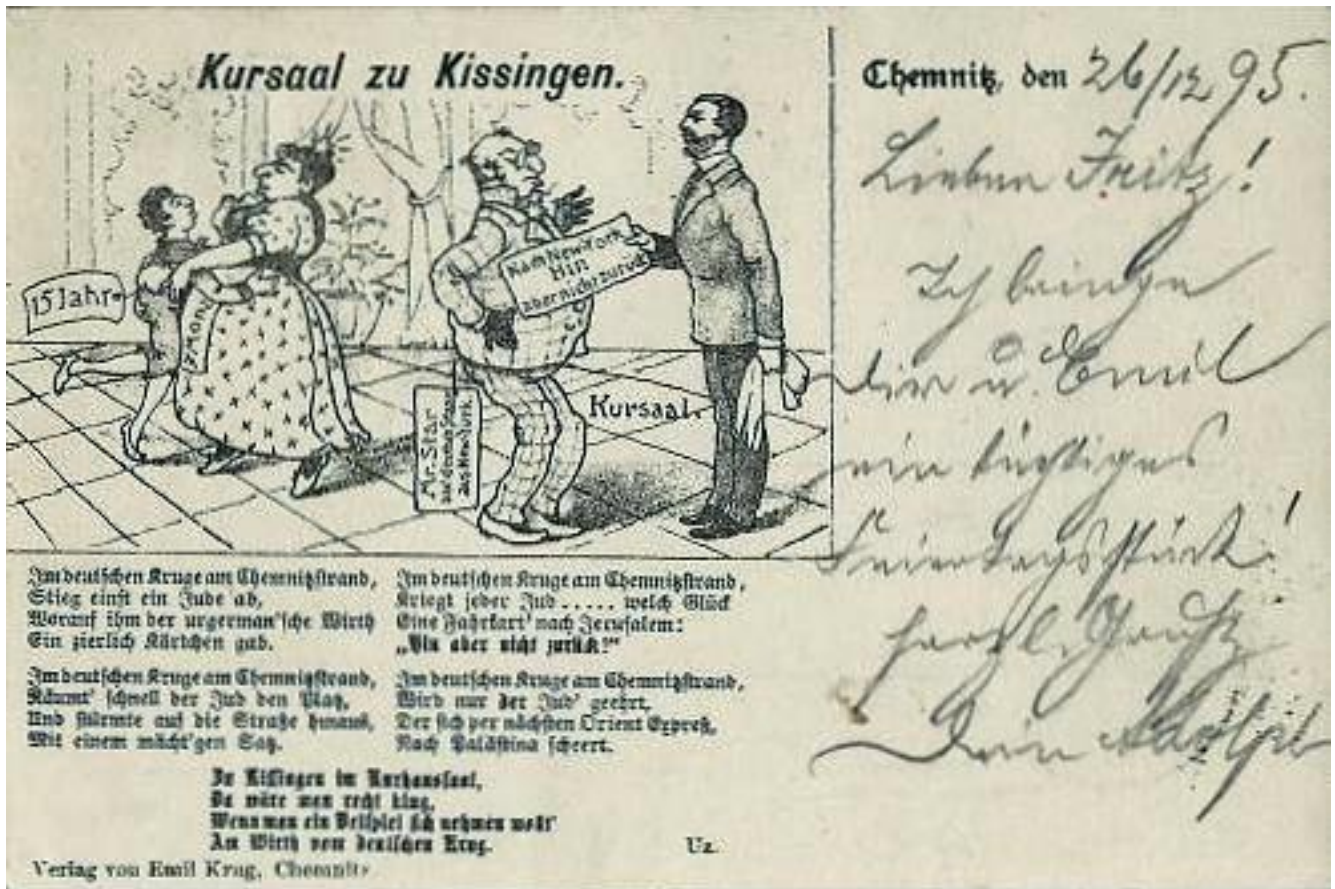 Kursaal zu Kissingen.
15 Jahr
Nach New-York
Hin
aber nicht zurück
Mr. Star
aus New York.
Kursaal.
Im deutschen Kruge am Chemnitzstrand,
Stieg einst ein Jude ab,
Worauf ihm der urgerman'sche Wirth
Ein zierlich Kärtchen gab.
Im deutschen Kruge am Chemnitzstrand,
Räumt' schnell der Jud den Platz,
Und stürmte auf die Straße hinaus,
Mit einem mächt'gen Satz.
Im deutschen Kruge am Chemnitzstrand,
Kriegt jeder Jud ..... welch Glück
Eine Fahrkart' nach Jerusalem:
„Hin aber nicht zurück!"
Im deutschen Kruge am Chemnitzstrand,
Wird nur der Jud' geehrt,
Der sich per nächsten Orient Expreß,
Nach Palästina scheert.
In Kissingen im Kurhaussaal,
Da wäre man recht klug,
Wenn man ein Beispiel sich nehmen wollt'
Am Wirth vom deutschen Krug.
Uz.
Verlag von Emil Krug, Chemnitz
Chemnitz, den 26/12 95.
Lieber Fritz!
Ich bringe
Dir u. Emil
ein tüchtiges
Feiertagsstück!
herzl. Gruß
Dein Adolph